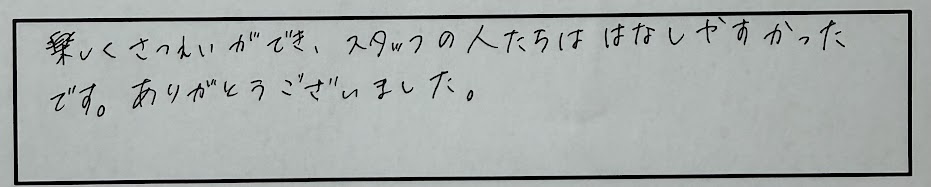 楽しくさつえいができ、スタッフの人たちは はなしやすかった
です。ありがとうございました。